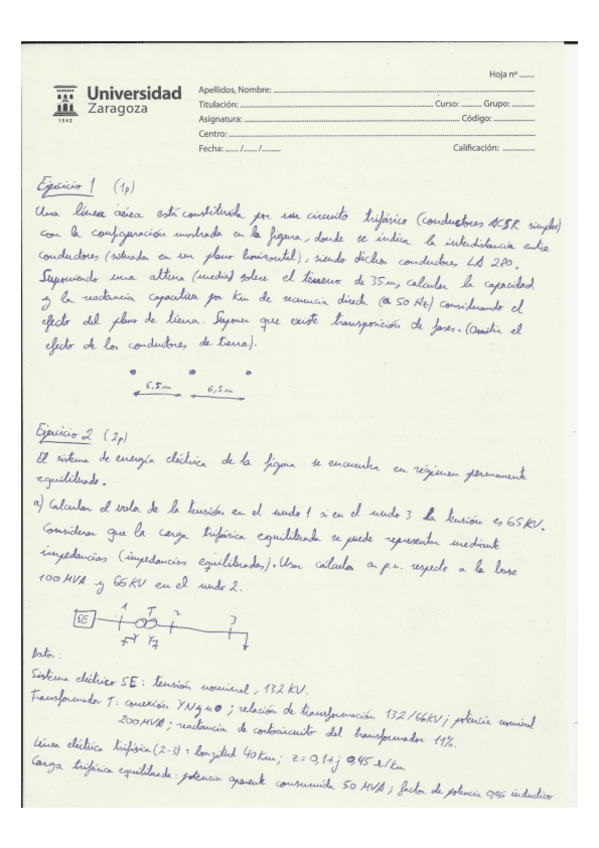 Hoja nº ........
Universidad
Zaragoza
1542
Apellidos, Nombre: ........
Titulación: ........ Curso: ........ Grupo: ........
Asignatura: ........ Código: ........
Centro: ........
Fecha: ...... /...... /......... Calificación: ........
Ejercicio 1 (1p)
Una línea aérea está constituida por un circuito trifásico (conductores ACSR simples)
con la configuración mostrada en la figura, donde se indica la interdistancia entre
conductores (situados en un plano horizontal), siendo dichos conductores LA 280.
Suponiendo una altura (media) sobre el terreno de 35m, calcular la capacidad
y la reactancia capacitiva por Km de secuencia directa (a 50 Hz) considerando el
efecto del plano de tierra. Suponer que existe transposición de fases. (Omitir el
efecto de los conductores de tierra).
6.5m 6,5m
Ejercicio 2 (2p)
El sistema de energía eléctrica de la figura se encuentra en régimen permanente
equilibrado.
a) Calcular el valor de la tensión en el nudo 1 si en el nudo 3 la tensión es 65 KV.
Considerar que la carga trifásica equilibrada se puede representar mediante
impedancias (impedancias equilibradas). Usar cálculos en p.u. respecto a la base
100 MVA y 66 KV en el nudo 2.
SE 1 T 2 3
Y Y
Datos:
Sistema eléctrico SE: tensión nominal, 132 KV.
Transformador T: conexión YNyn0; relación de transformación 132/66KV; potencia nominal
200 MVA; reactancia de cortocircuito del transformador 11%.
Línea eléctrica trifásica (2-3): longitud 40 Km; z = 0,1 + j 0,45 Ω/km
Carga trifásica equilibrada: potencia aparente consumida 50 MVA; factor de potencia 0,96 inductivo